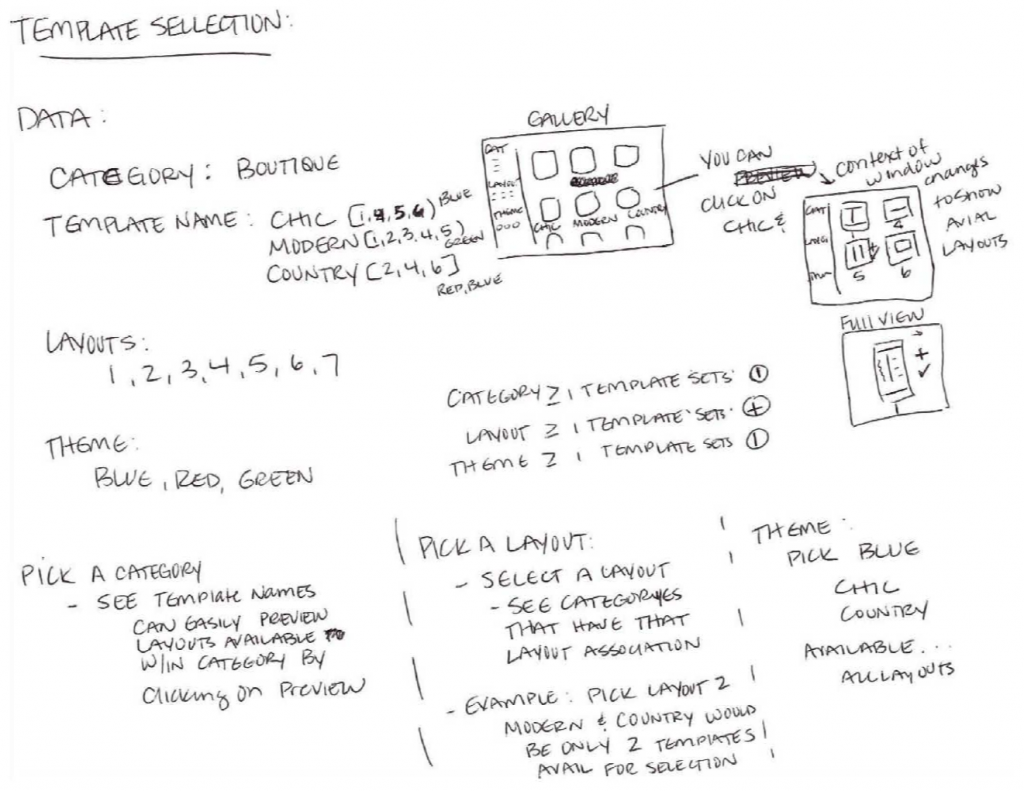 TEMPLATE SELLECTION:
DATA:
CATEGORY: BOUTIQUE
TEMPLATE NAME: CHIC [1,4,5,6) BLUE
MODERN [1,2,3,4,5) GREEN
COUNTRY [2,4,6] RED, BLUE
LAYOUTS:
1, 2, 3, 4, 5, 6, 7
THEME:
BLUE, RED, GREEN
GALLERY
CAT
LAYOUT
THEME
CHIC MODERN COUNTRY
YOU CAN
CLICK ON
CHIC &
context of
window
changes
to show
AVIAL
LAYOUTS
CAT
4
5 6
FULL VIEW
CATEGORY ≥ 1 TEMPLATE SETS
LAYOUT ≥ 1 TEMPLATE SETS
THEME ≥ 1 TEMPLATE SETS
PICK A CATEGORY
- SEE TEMPLATE NAMES
CAN EASILY PREVIEW
LAYOUTS AVAILABLE
W/IN CATEGORY BY
Clicking on Preview
PICK A LAYOUT:
- SELECT A LAYOUT
- SEE CATEGORYES
THAT HAVE THAT
LAYOUT ASSOCIATION
- EXAMPLE: PICK LAYOUT 2
MODERN & COUNTRY WOULD
BE ONLY 2 TEMPLATES
AVAIL FOR SELECTION
THEME:
PICK BLUE
CHIC
COUNTRY
AVAILABLE...
ALL LAYOUTS